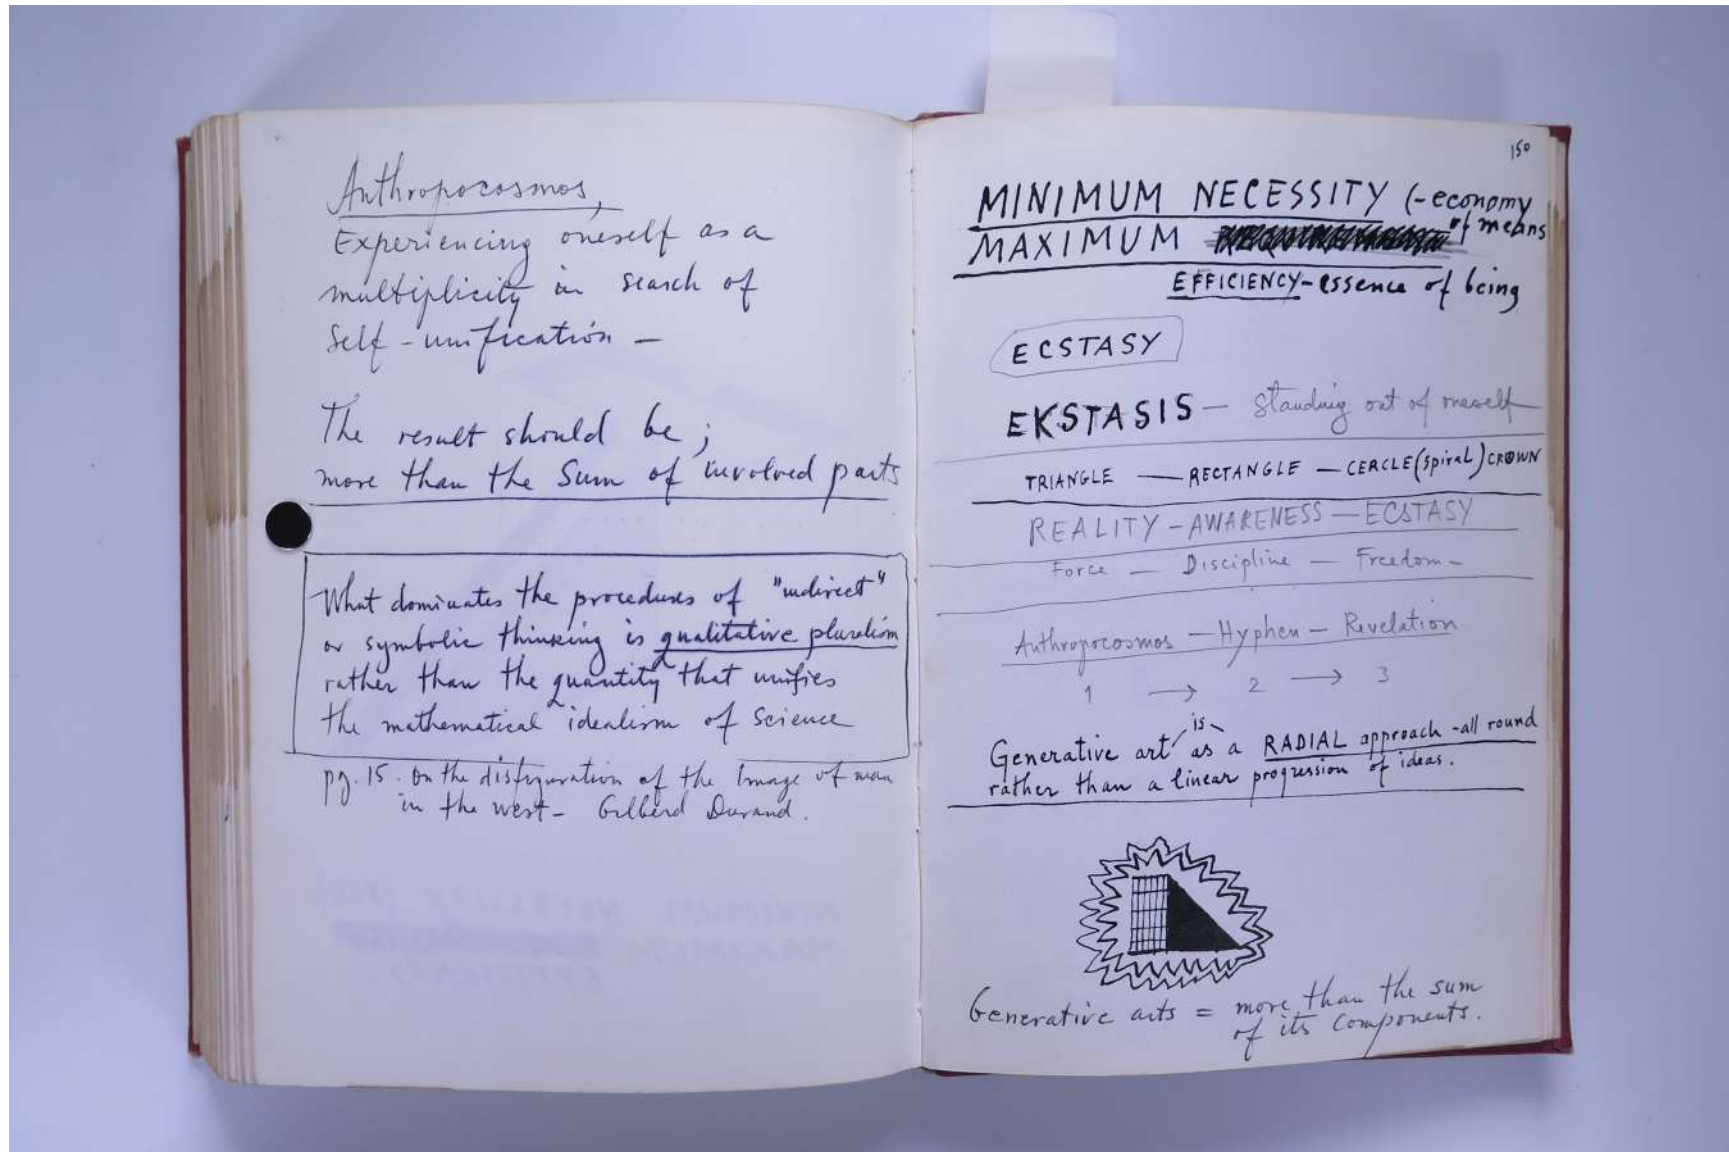 Anthropocosmos,
Experiencing oneself as a
multiplicity in search of
Self-unification —
The result should be;
more than the Sum of involved parts
What dominates the procedures of "indirect"
or symbolic thinking is qualitative pluralism
rather than the quantity that unifies
the mathematical idealism of Science
pg. 15. On the disfiguration of the Image of man
in the west - Gilberd Durand.
150
MINIMUM NECESSITY (-economy
of means
MAXIMUM
EFFICIENCY - essence of being
ECSTASY
EKSTASIS — Standing out of oneself
TRIANGLE — RECTANGLE — CERCLE (spiral) CROWN
REALITY - AWARENESS — ECSTASY
Force — Discipline — Freedom -
Anthropocosmos — Hyphen — Revelation
1 → 2 → 3
is
Generative art as a RADIAL approach - all round
rather than a linear progression of ideas.
Generative arts = more than the sum
of its components.